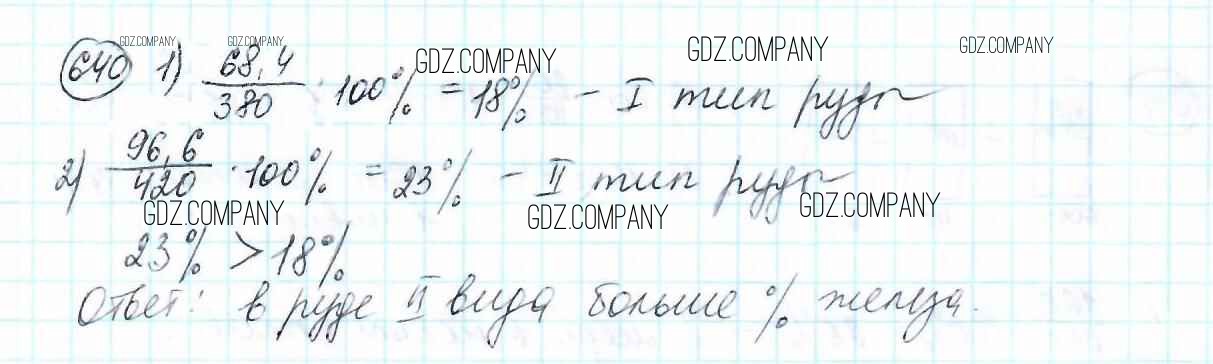 GDZ.COMPANY GDZ.COMPANY GDZ.COMPANY GDZ.COMPANY GDZ.COMPANY
640 1) 68,4/380 · 100% = 18% – I тип руды
2) 96,6/420 · 100% = 23% – II тип руды
GDZ.COMPANY GDZ.COMPANY GDZ.COMPANY
23% > 18%
Ответ: в руде II вида больше % железа.